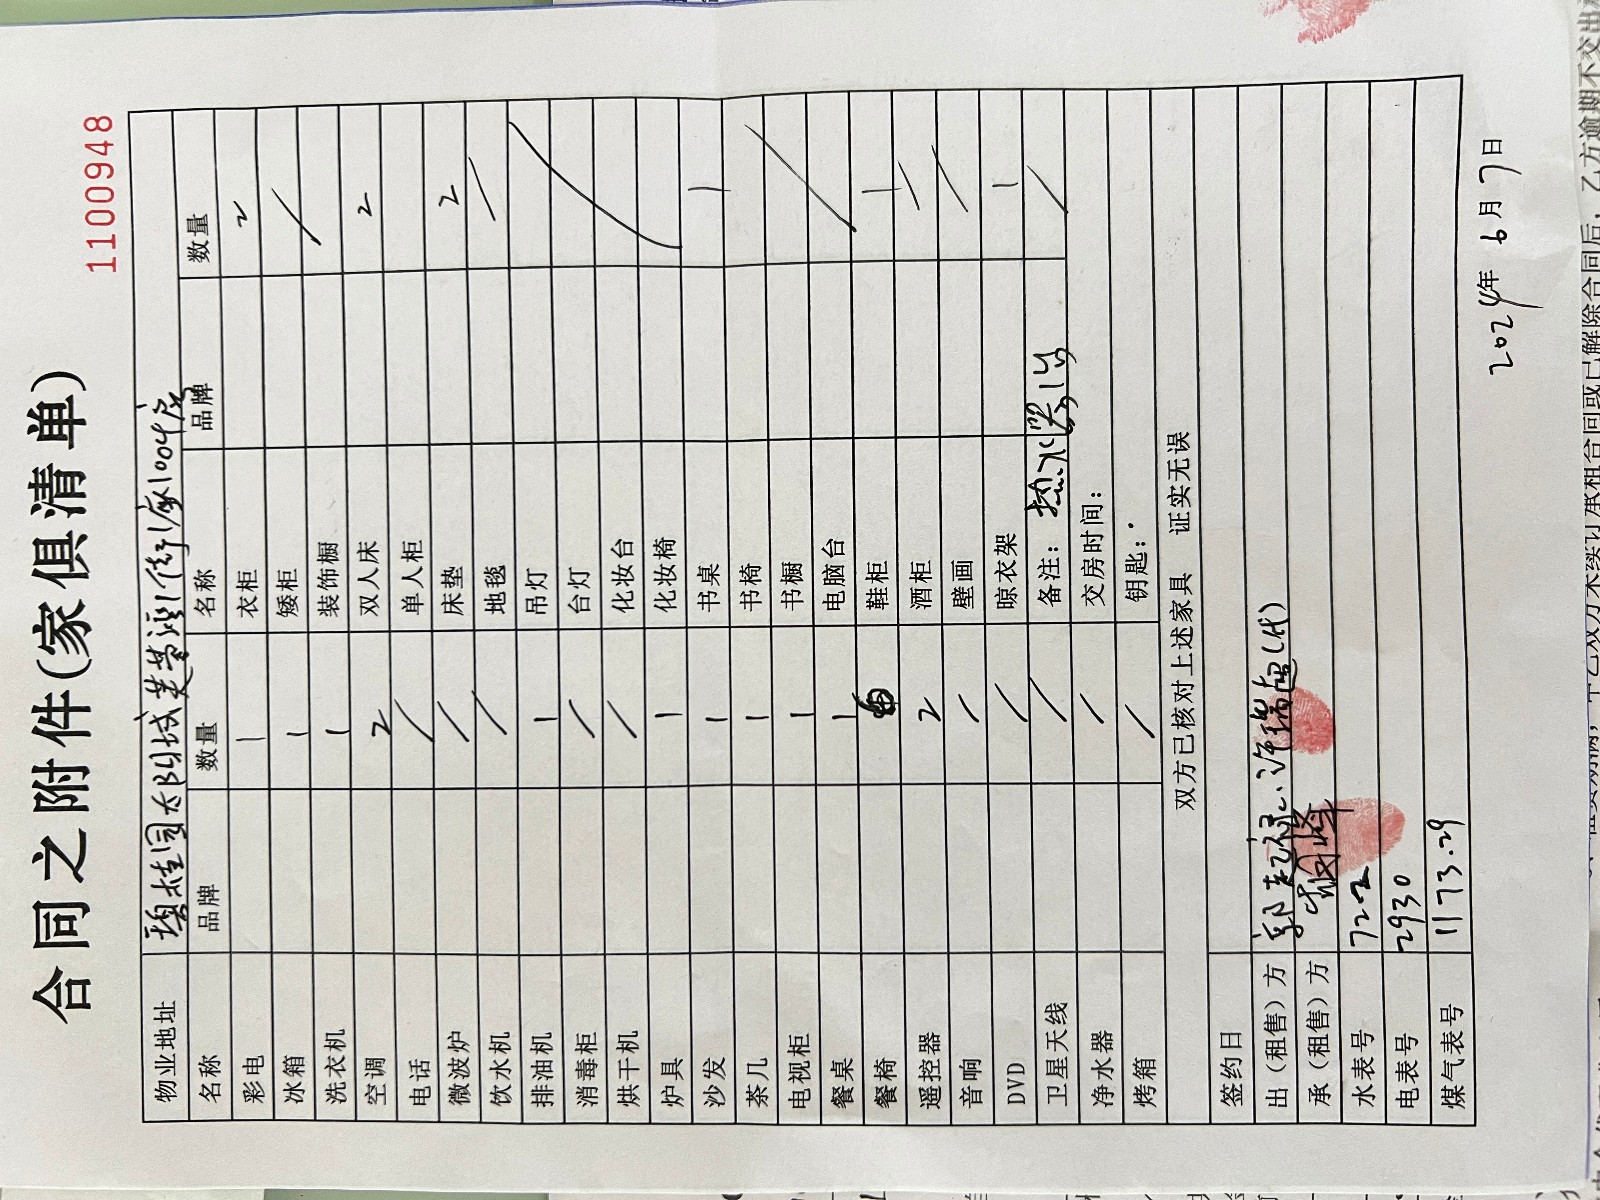 1100948
合同之附件(家俱清单)
物业地址 碧桂园太阳城芙蓉湾1街1座1004房
名称 品牌 数量 名称 品牌 数量
彩电 1 衣柜 2
冰箱 1 矮柜 /
洗衣机 1 装饰橱
空调 2 双人床 2
电话 / 单人柜
微波炉 / 床垫 2
饮水机 / 地毯 /
排油机 1 吊灯 /
消毒柜 / 台灯
烘干机 / 化妆台
炉具 1 化妆椅
沙发 1 书桌 1
茶几 1 书椅 /
电视柜 1 书橱
餐桌 1 电脑台
餐椅 鞋柜 1
遥控器 2 酒柜 /
音响 / 壁画 /
DVD / 晾衣架 1
卫星天线 / 备注：热水器1台 /
净水器 / 交房时间：
烤箱 / 钥匙：
双方已核对上述家具 证实无误
签约日
出（租售）方 (代)
承（租售）方
水表号 722
电表号 2930
煤气表号 1173.29
2024年6月7日